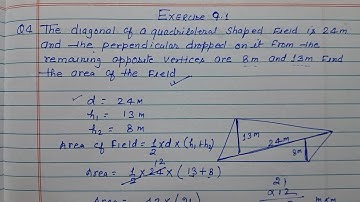 EXERCISE 9.1
Q4 The diagonal of a quadrilateral shaped field is 24m
and the perpendicular dropped on it from the
remaining opposite vertices are 8m and 13m Find
the area of the Field
d = 24m
h₁ = 13m
h₂ = 8m
Area of Field = 1/2 × d × (h₁+h₂)
12
Area = 1/2 × 24 × (13+8)
13m
24m
8m
21
×12